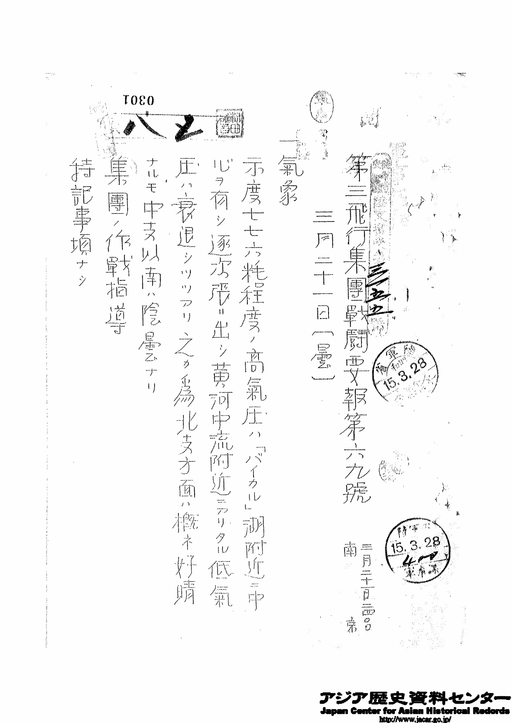 第三飛行集團戰鬪要報第六九號
三月二十一日(曇)
三月二十一日二四〇〇
南京
一氣象
示度七七六粍程度ノ高氣圧ハ「バイカル」湖附近ニ中
心ヲ有シ逐次張リ出シ黄河中流附近ニアリタル低氣
圧ハ衰退シツツアリ之カ爲北支方面ハ概ネ好晴
ナルモ中支以南ハ陰曇ナリ
集團ノ作戰指導
特記事項ナシ
0301
15.3.28
15.3.28
400
アジア歴史資料センター
Japan Center for Asian Historical Records
http://www.jacar.go.jp/